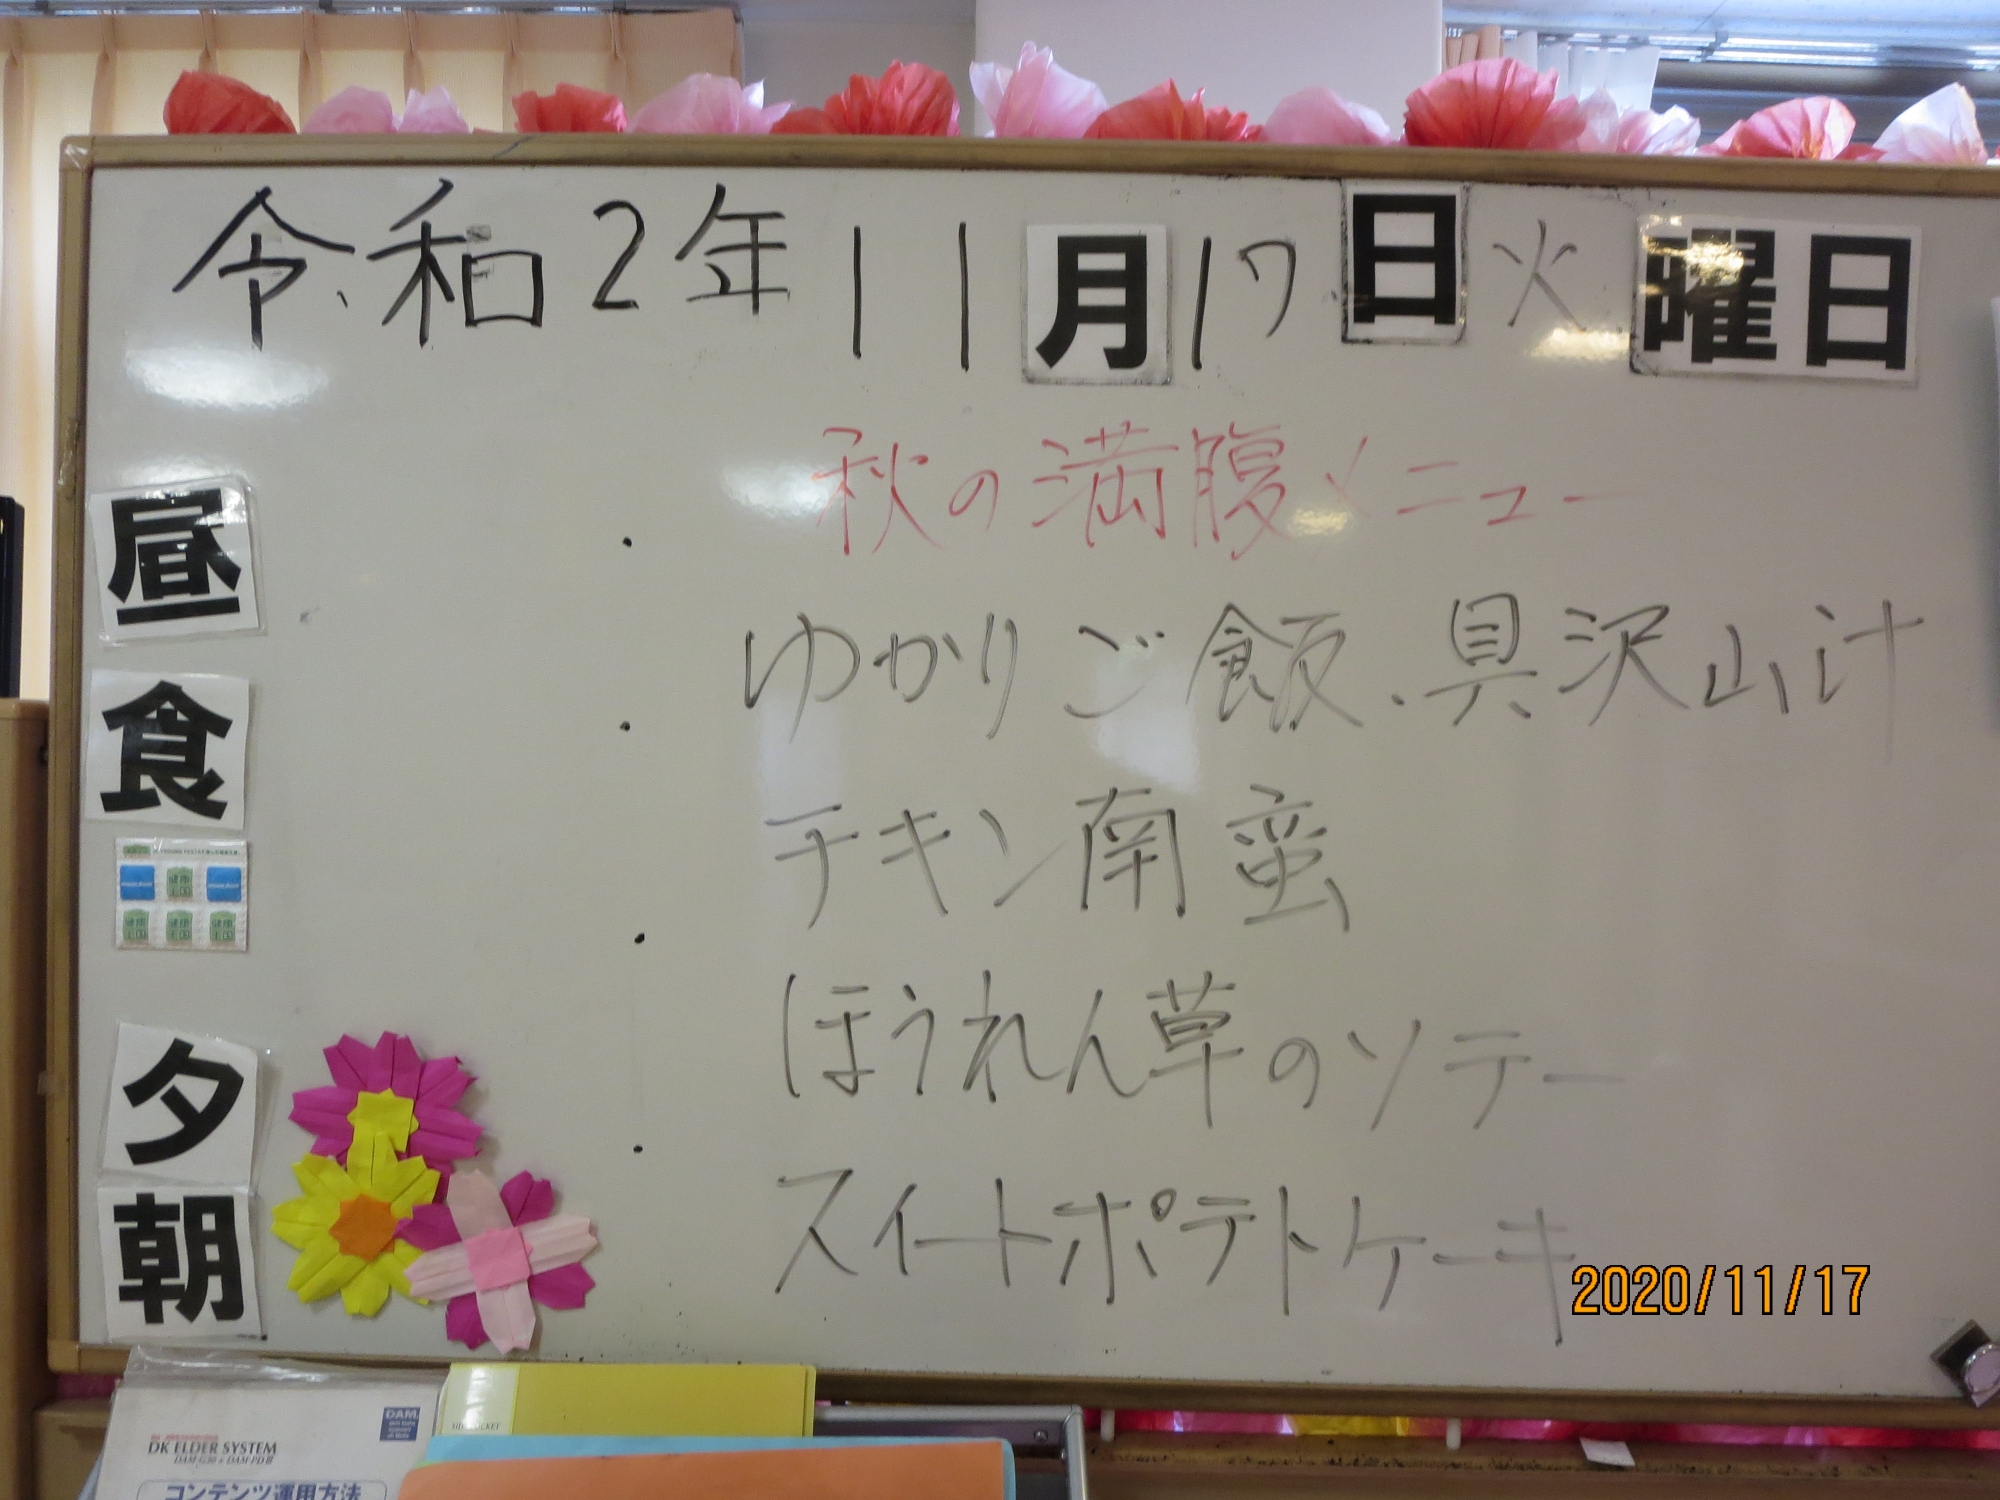 令和2年11月17日火曜日
秋の満腹メニュー
昼食
・ゆかりご飯、具沢山汁
・チキン南蛮
・ほうれん草のソテー
・スイートポテトケーキ
夕朝
2020/11/17
DAM
DK ELDER SYSTEM
DAM-G30 + DAM-PDⅢ
コンテンツ運用方法